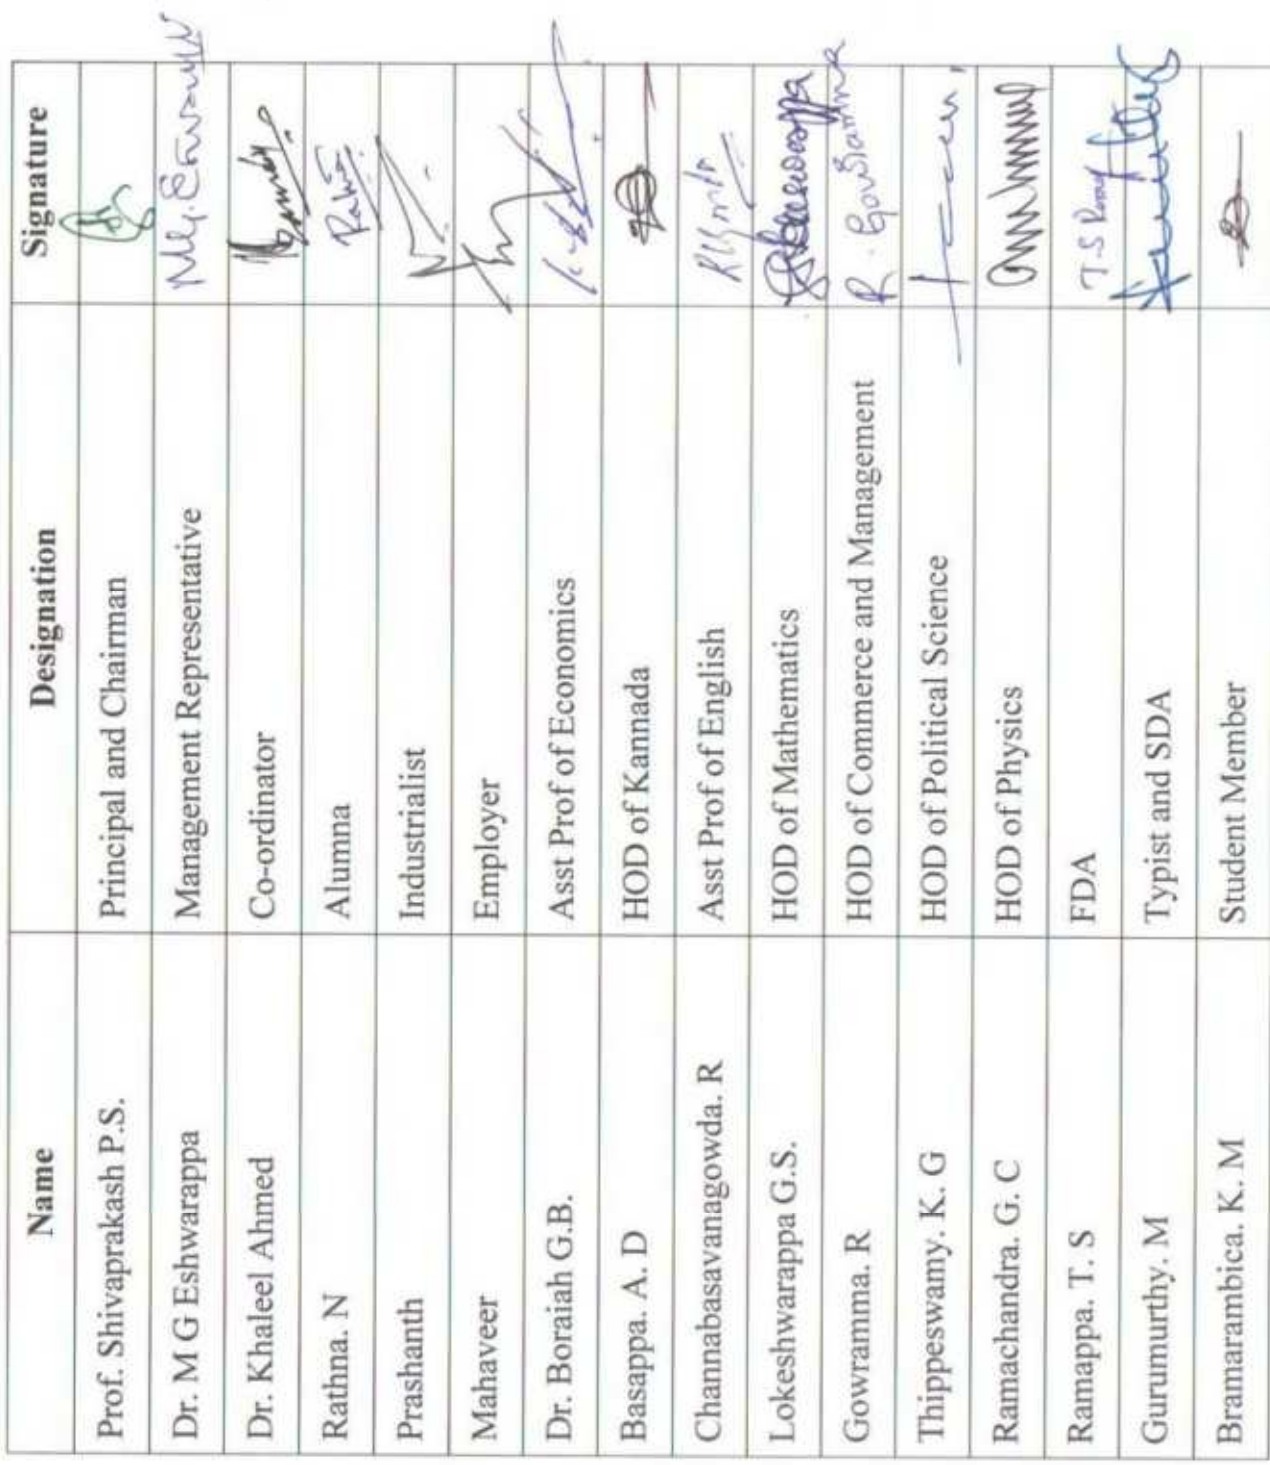 Name Designation Signature
Prof. Shivaprakash P.S. Principal and Chairman
Dr. M G Eshwarappa Management Representative
Dr. Khaleel Ahmed Co-ordinator
Rathna. N Alumna
Prashanth Industrialist
Mahaveer Employer
Dr. Boraiah G.B. Asst Prof of Economics
Basappa. A. D HOD of Kannada
Channabasavanagowda. R Asst Prof of English
Lokeshwarappa G.S. HOD of Mathematics
Gowramma. R HOD of Commerce and Management
Thippeswamy. K. G HOD of Political Science
Ramachandra. G. C HOD of Physics
Ramappa. T. S FDA T.S
Gurumurthy. M Typist and SDA
Bramarambica. K. M Student Member